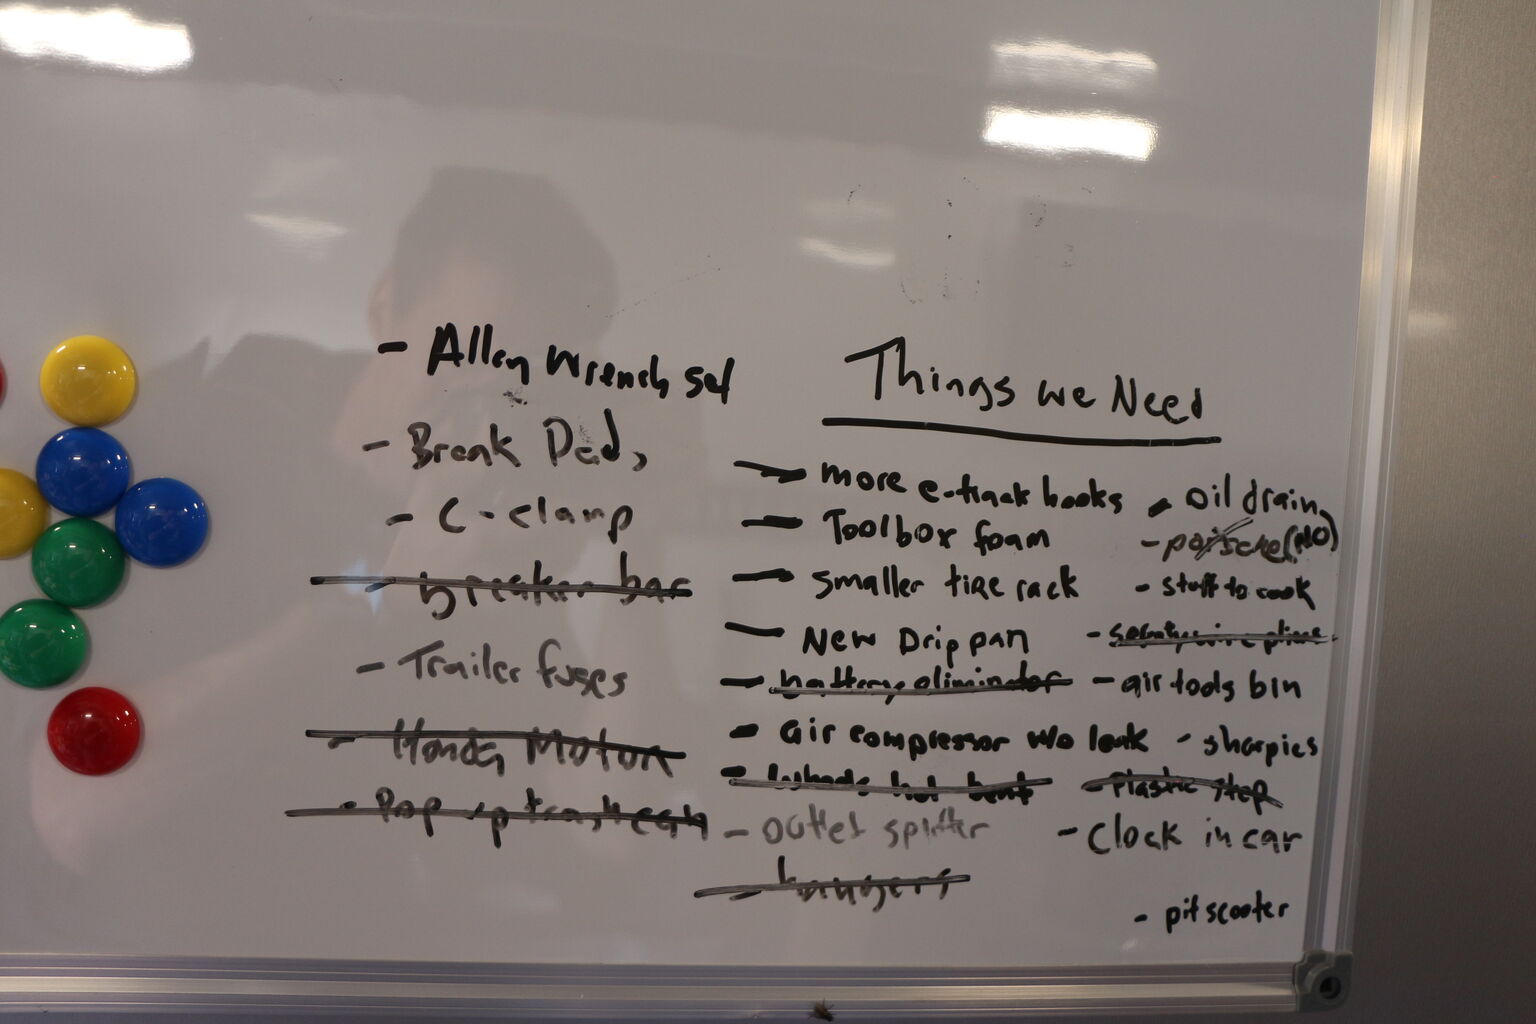 - Allen Wrench set
- Break Pads
- C-clamp
- breaker bar
- Trailer fuses
- Honda Motor
- Pop up trash can
Things we Need
- more e-track hooks
- Toolbox foam
- smaller tire rack
- New Drip pan
- battery eliminator
- air compressor w/o leak
- Wheels not bent
- outlet splitter
- hangers
- oil drain
- porsche (NO)
- stuff to cook
- safety wire pliers
- air tools bin
- sharpies
- Plastic step
- Clock in car
- pit scooter